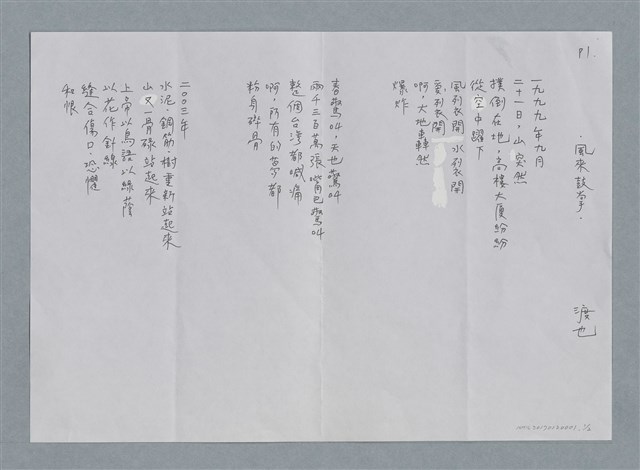 P1.
．風來鼓掌．
渡也
一九九九年九月
二十一日，山突然
撲倒在地，高樓大厦紛紛
從空中躍下
風裂開 水裂開
愛裂開
啊，大地轟然
爆炸
驚叫，天也驚叫
兩千三百萬張嘴巴驚叫
整個台灣都喊痛
啊，所有的夢都
粉身碎骨
二○○三年
水泥，鋼筋，樹重新站起來
山又一骨碌站起來
上帝以鳥語以綠蔭
以花作針線
縫合傷口，恐懼
和恨